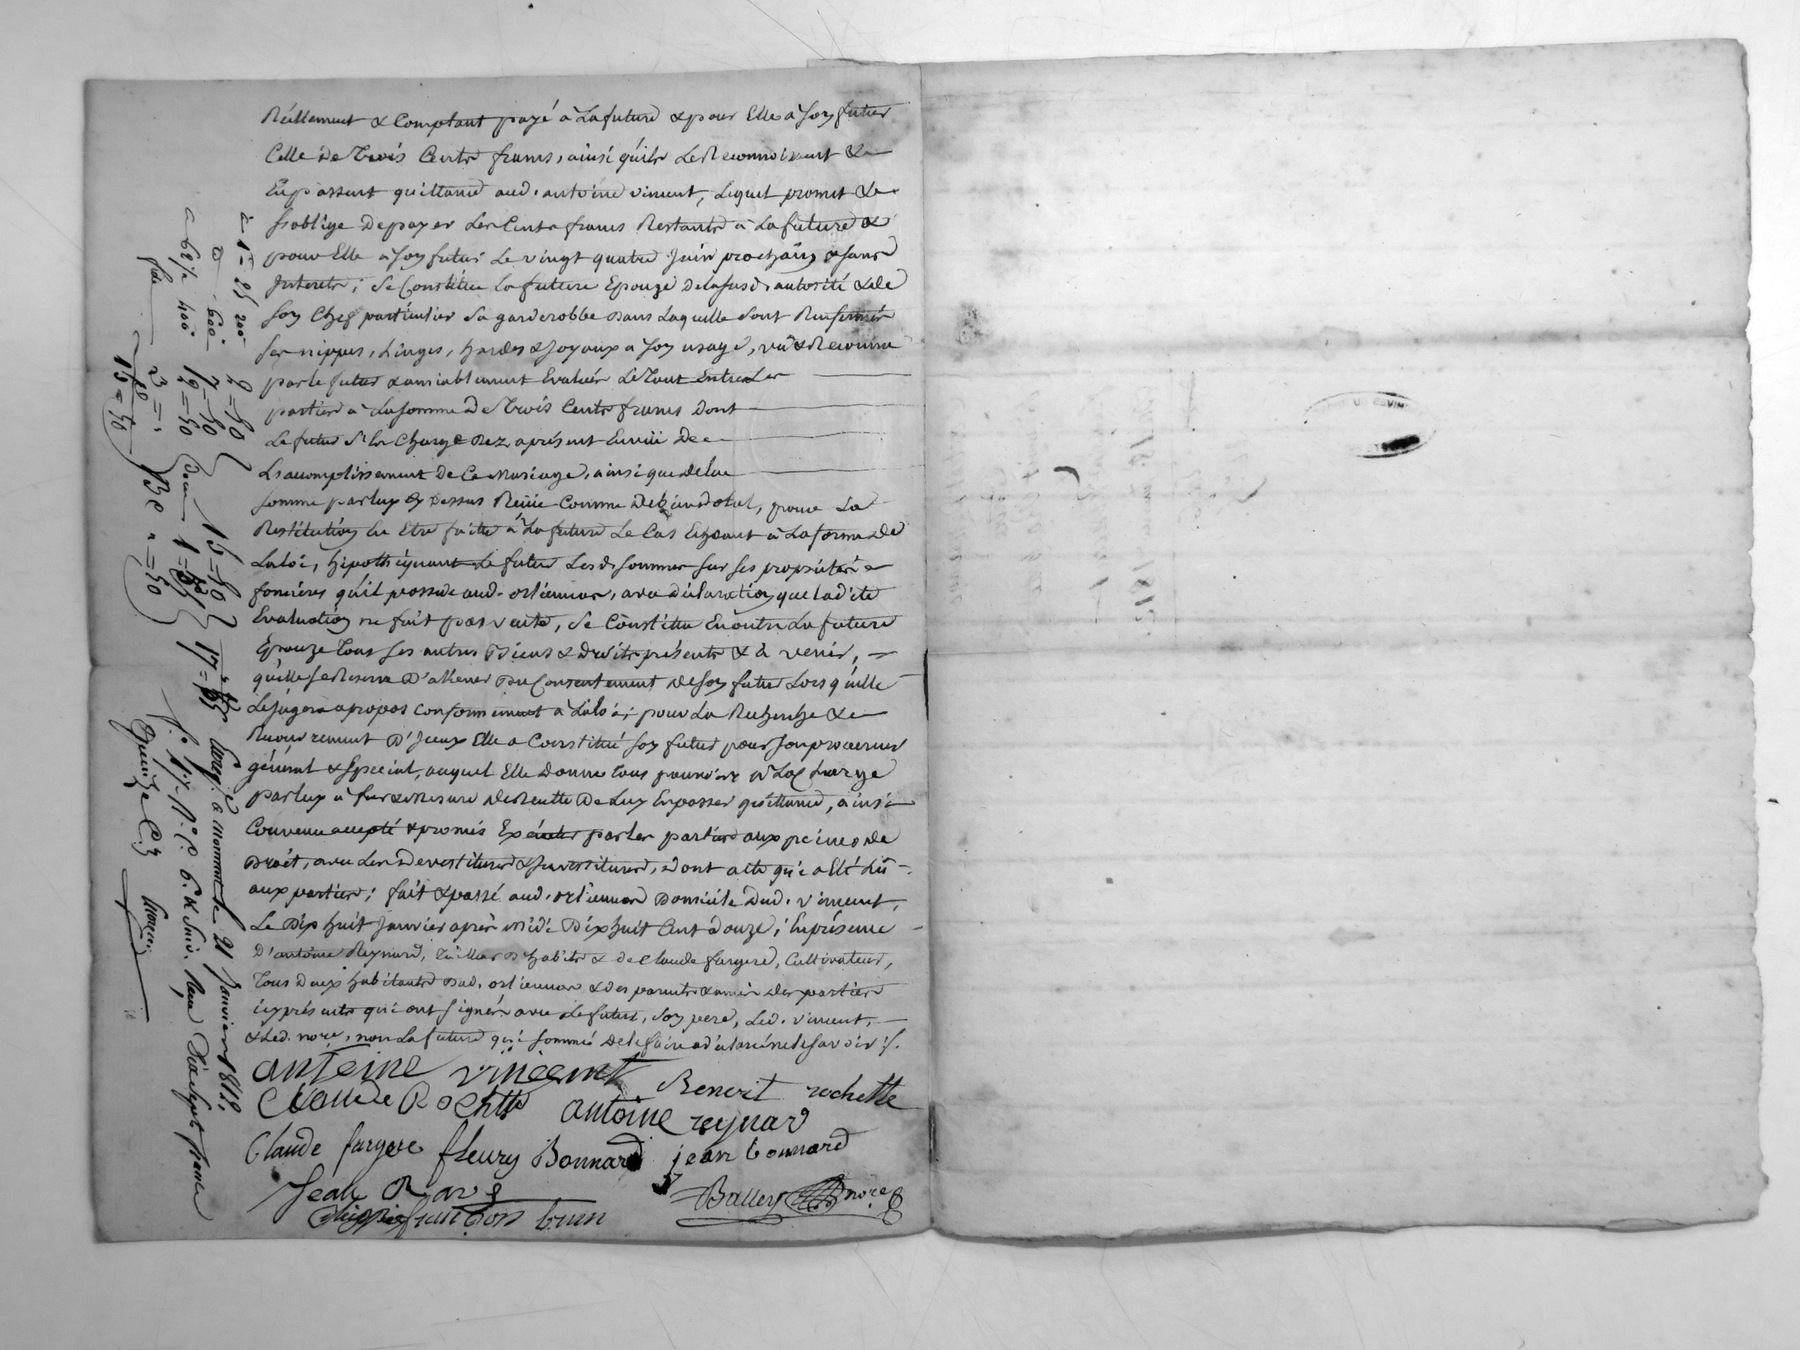 Réellement & Comptant payé à La future & pour Elle à Son futur
Celle de Trois Cents francs, ainsi qu'ils Le Reconnoissent &
En passent quittance aud. antoine vincent, Lequel promet & Se
s'oblige De payer Les Cents francs Restants à La future &
pour Elle à Son futur Le vingt quatre Juin prochain & sans
Interets; Se Constitue La future Epouze De la susd. autorité & de
Son Chef particulier Sa garderobbe Dans Laquelle Sont Renfermés
Ses nippes, Linges, hardes & Joyaux a Son usage, vû & Reconnu
par le futur & amiablement Evalués Le Tout Entre Les
parties à La somme De Trois Cents francs Dont
Le futur S'En Charge Dez aprésent En vüe De
L'accomplissement De Ce Mariage, ainsi que De la
somme par luy Cy Dessus Reçüe Comme De bien Dotal, pour La
Restitution En Etre faite à La future Le Cas Echéant à La forme De
La Loi, hipothéquant Le futur Lesd. sommes sur ses propriétés
foncières qu'il possede aud. orliennas, avec déclaration que Ladite
Evaluation ne fait pas vente, Se Constitue En outre La future
Epouze Tous Ses autres Biens & Droits présents & à venir,
qu'elle Se Reserve D'aliener Du Consentement De Son futur Lorsqu'elle
Le Jugera apropos conformement à La Loi; pour La Recherche &
Recouvrement D'Iceux Elle a Constitué Son futur pour Son procureur
général & Special, auquel Elle Donne Tous pouvoirs à La Charge
par luy à fur & Mesure De Recette De Luy En passer quittance, ainsi
Convenu accepté & promis Exécuter par les parties aux peines De
Droit, avec Les Devestitures & Investitures, Dont acte qui a Eté Lû
aux parties; fait & passé aud. orliennas Domicile Dud. vincent,
Le Dix huit Janvier après midi Dix huit Cent Douze; En présence
D'antoine Reynard, Tailleur D'habits & de Claude fargere, Cultivateur,
Tous Deux habitants Dud. orliennas & Des parents & amis Des parties
icy présents qui ont Signés avec Le futur, Son pere, Led. vincent,
& Led. nore, non La future qui Sommée De le faire a déclaré ne le Savoir ./.
antoine vincent
Benoit rochette
Claude Rochtte
antoine reynard
Claude fargere fleury Bonnard jean bonnard
Jean
francois brun
nore
à 1= 25 200 2=50
D 600 7=50
a 62½ 400 12=50
3=
15=50
15=50
Enreg. à mornant le 21 Janvier 1812.
Reçu Dix Sept francs
Quinze C.